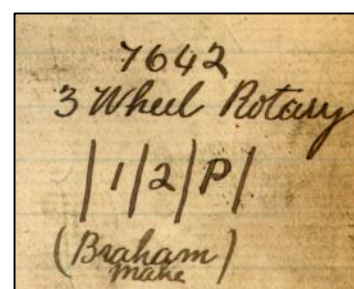 7642
3 Wheel Rotary
|1|2|P|
(Braham)
make